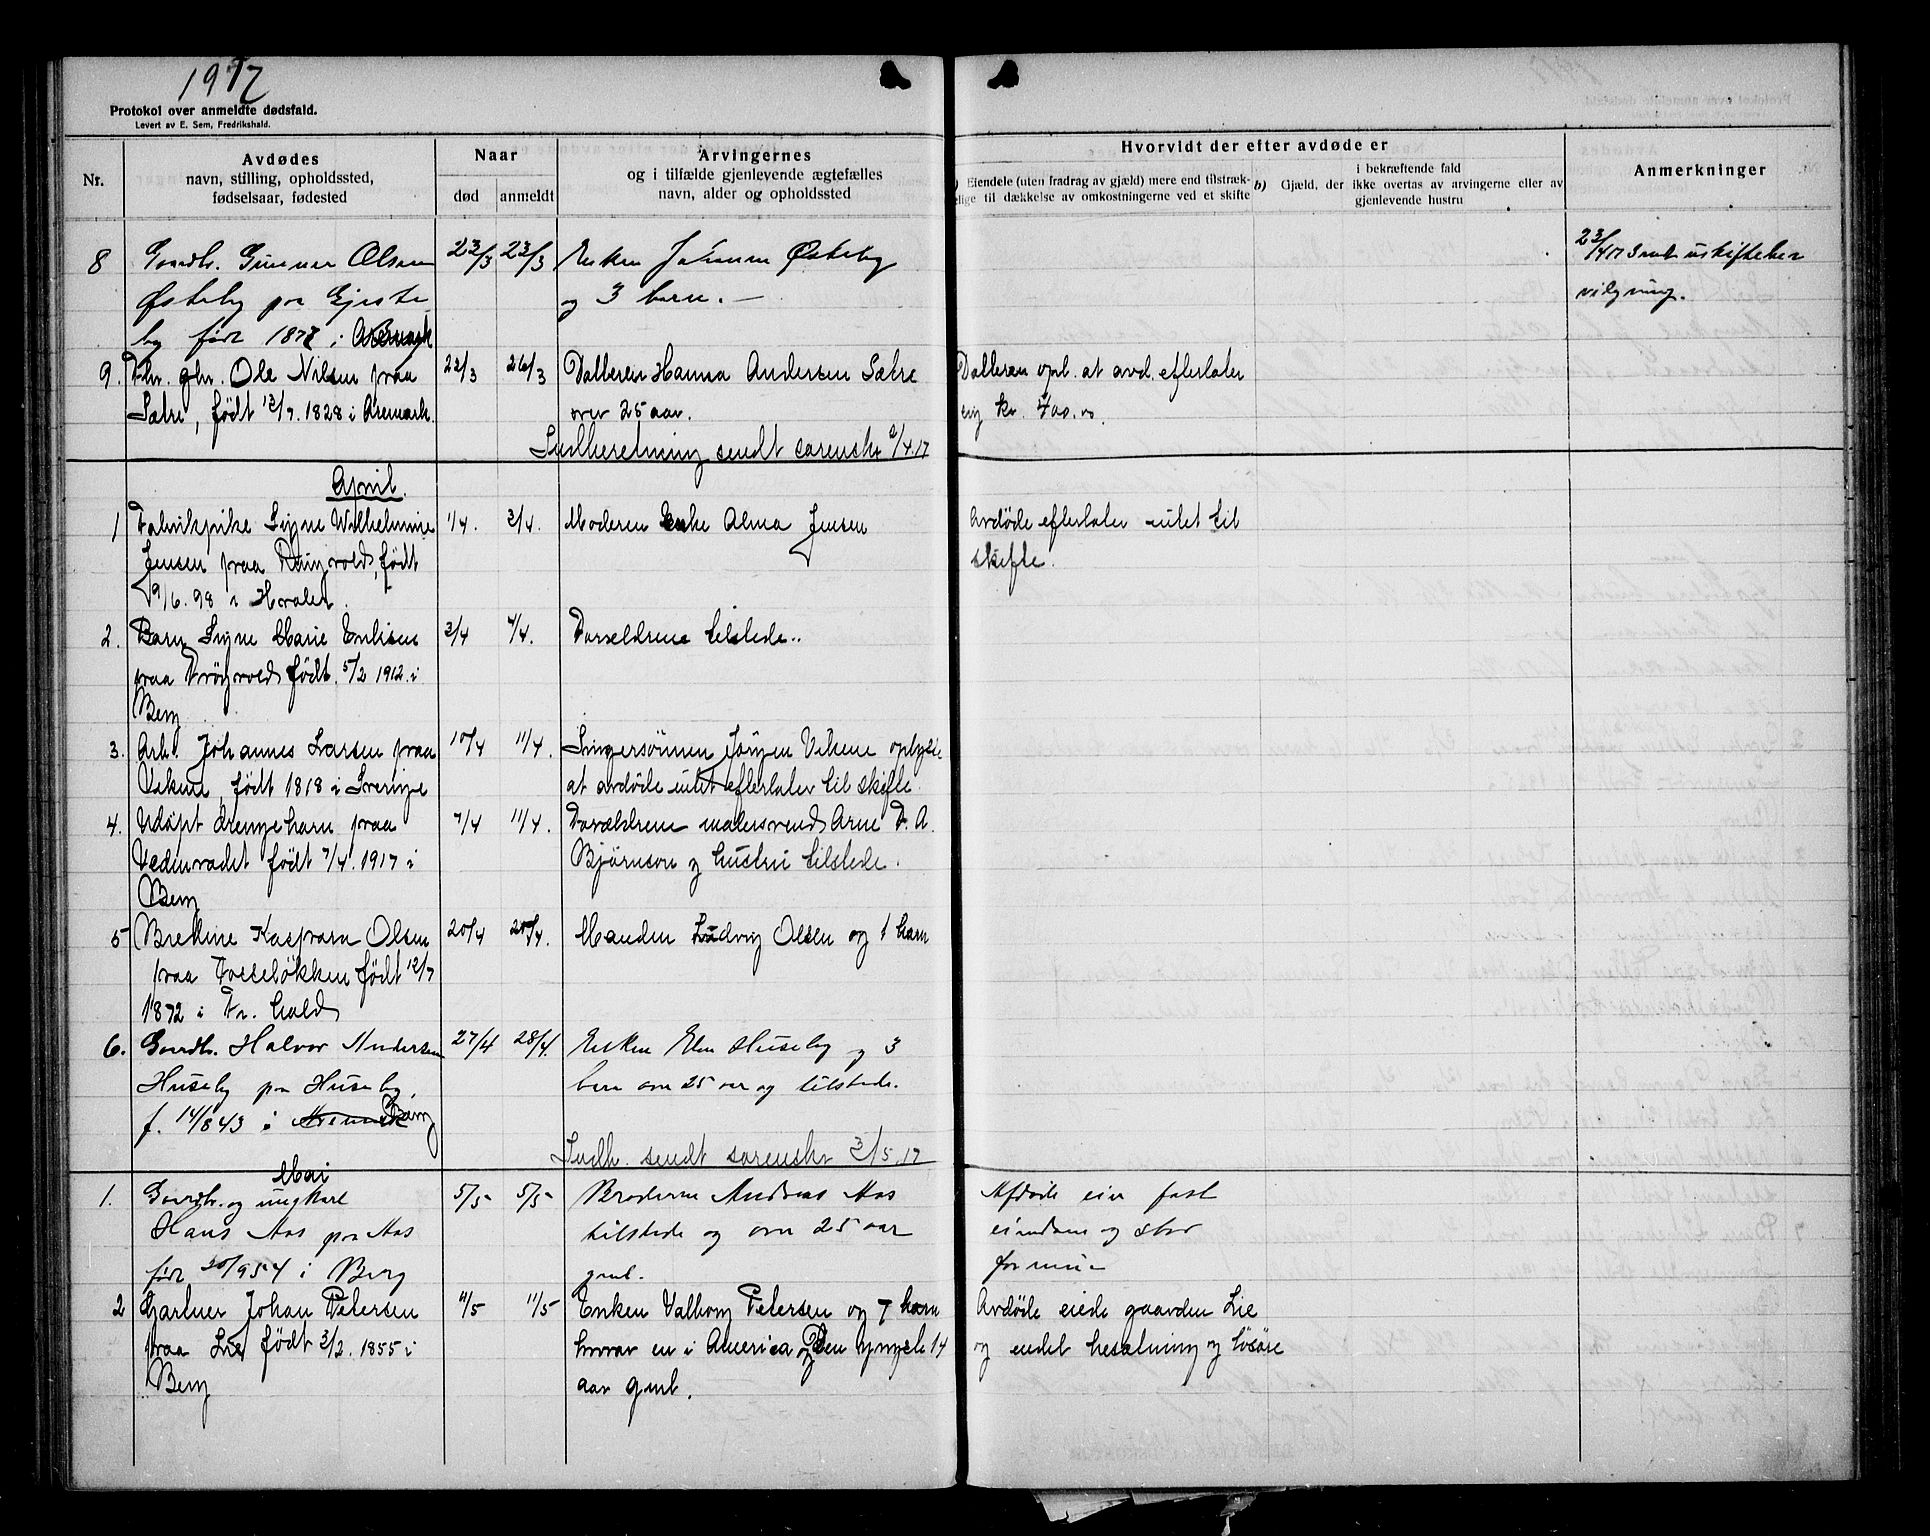 1917
Protokol over anmeldte dødsfald.
Levert av E. Sem, Fredrikshald.
Nr.
Avdødes
navn, stilling, opholdssted,
fødselsaar, fødested
Naar
død
anmeldt
Arvingernes
og i tilfælde gjenlevende ægtefælles
navn, alder og opholdssted
Hvorvidt der efter avdøde er
Eiendele (uten fradrag av gjæld) mere end tilstræk-
lige til dækkelse av omkostningerne ved et skifte
b) Gjæld, der
i bekræftende fald
ikke overtas av arvingerne eller av
gjenlevende hustru
Anmerkninger
8 Gaardbr. Gunnar Olsen 23/3 23/3 Enken Johanne Østeby 23/4 17 Sendt uskiftebe
Østeby paa og 3 barn. — vilgning.
by født 1872 i Aremark
9. Fhv. gbr. Ole Nilsen paa 22/3 26/3 Datteren Hanna Andersen Sætre Datteren opl. at avd. efterlater
Sætre, født 13/7. 1828 i Aremark. over 25 aar. kr. 400.00
Indberetning sendt sorenskr 2/4.17
April.
1 Fabrikpike Signe Wilhelmine 1/4. 3/4. Moderen Enke Alma Jensen Avdøde efterlater intet til
Jensen paa født skifte.
9/6. 98 i Hvaler.
2. Barn Signe Marie 3/4 4/4. Forældrene tilstede..
paa født 5/2 1912 i
Berg
3. Arb. Johannes Larsen paa 10/4 11/4. Svigersønnen Jørgen Vikene oplyste
født 1818 i Sverige at avdøde intet efterlater til skifte.
4. Udøpt drengebarn paa 7/4 11/4. Forældrene malersvend Arne F. A.
født 7/4. 1917 i Bjørnson og hustru tilstede.
Berg
5 Olsen 20/4 20/4. Manden Ludvig Olsen og 1 barn
paa født 12/7
1872 i Fr. hald
6. Gaardbr. Halvor Andersen 27/4 28/4. Enken Huseby og 3
Huseby paa Huseby barn over 25 aar og tilstede.
f. 14/8 43 i Aremark Berg
Indb. sendt sorenskr 3/5.17
Mai
1. Gaardbr. og ungkarl 5/5 5/5 Broderen Andreas Aas Afdøde eier fast
Hans Aas paa Aas tilstede og over 25 aar eiendom og stor
født 20/9 54 i Berg gml. formue
2 Gartner Johan Petersen 11/5 11/5 Enken Valborg Petersen og 7 barn Avdøde eiede gaarden Lie
paa Lie født 3/2. 1855 i hvorav en i America og den yngste 14 og endel besætning og løsøre
Berg aar gml.